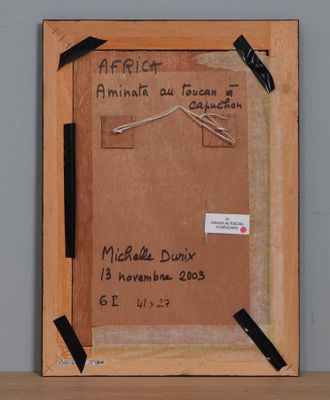 AFRICA
Aminata au toucan à
capuchon
AMINATA AU TOUCAN
A CAPUCHON
Michelle Durix
13 novembre 2003
6 I 41 x 27